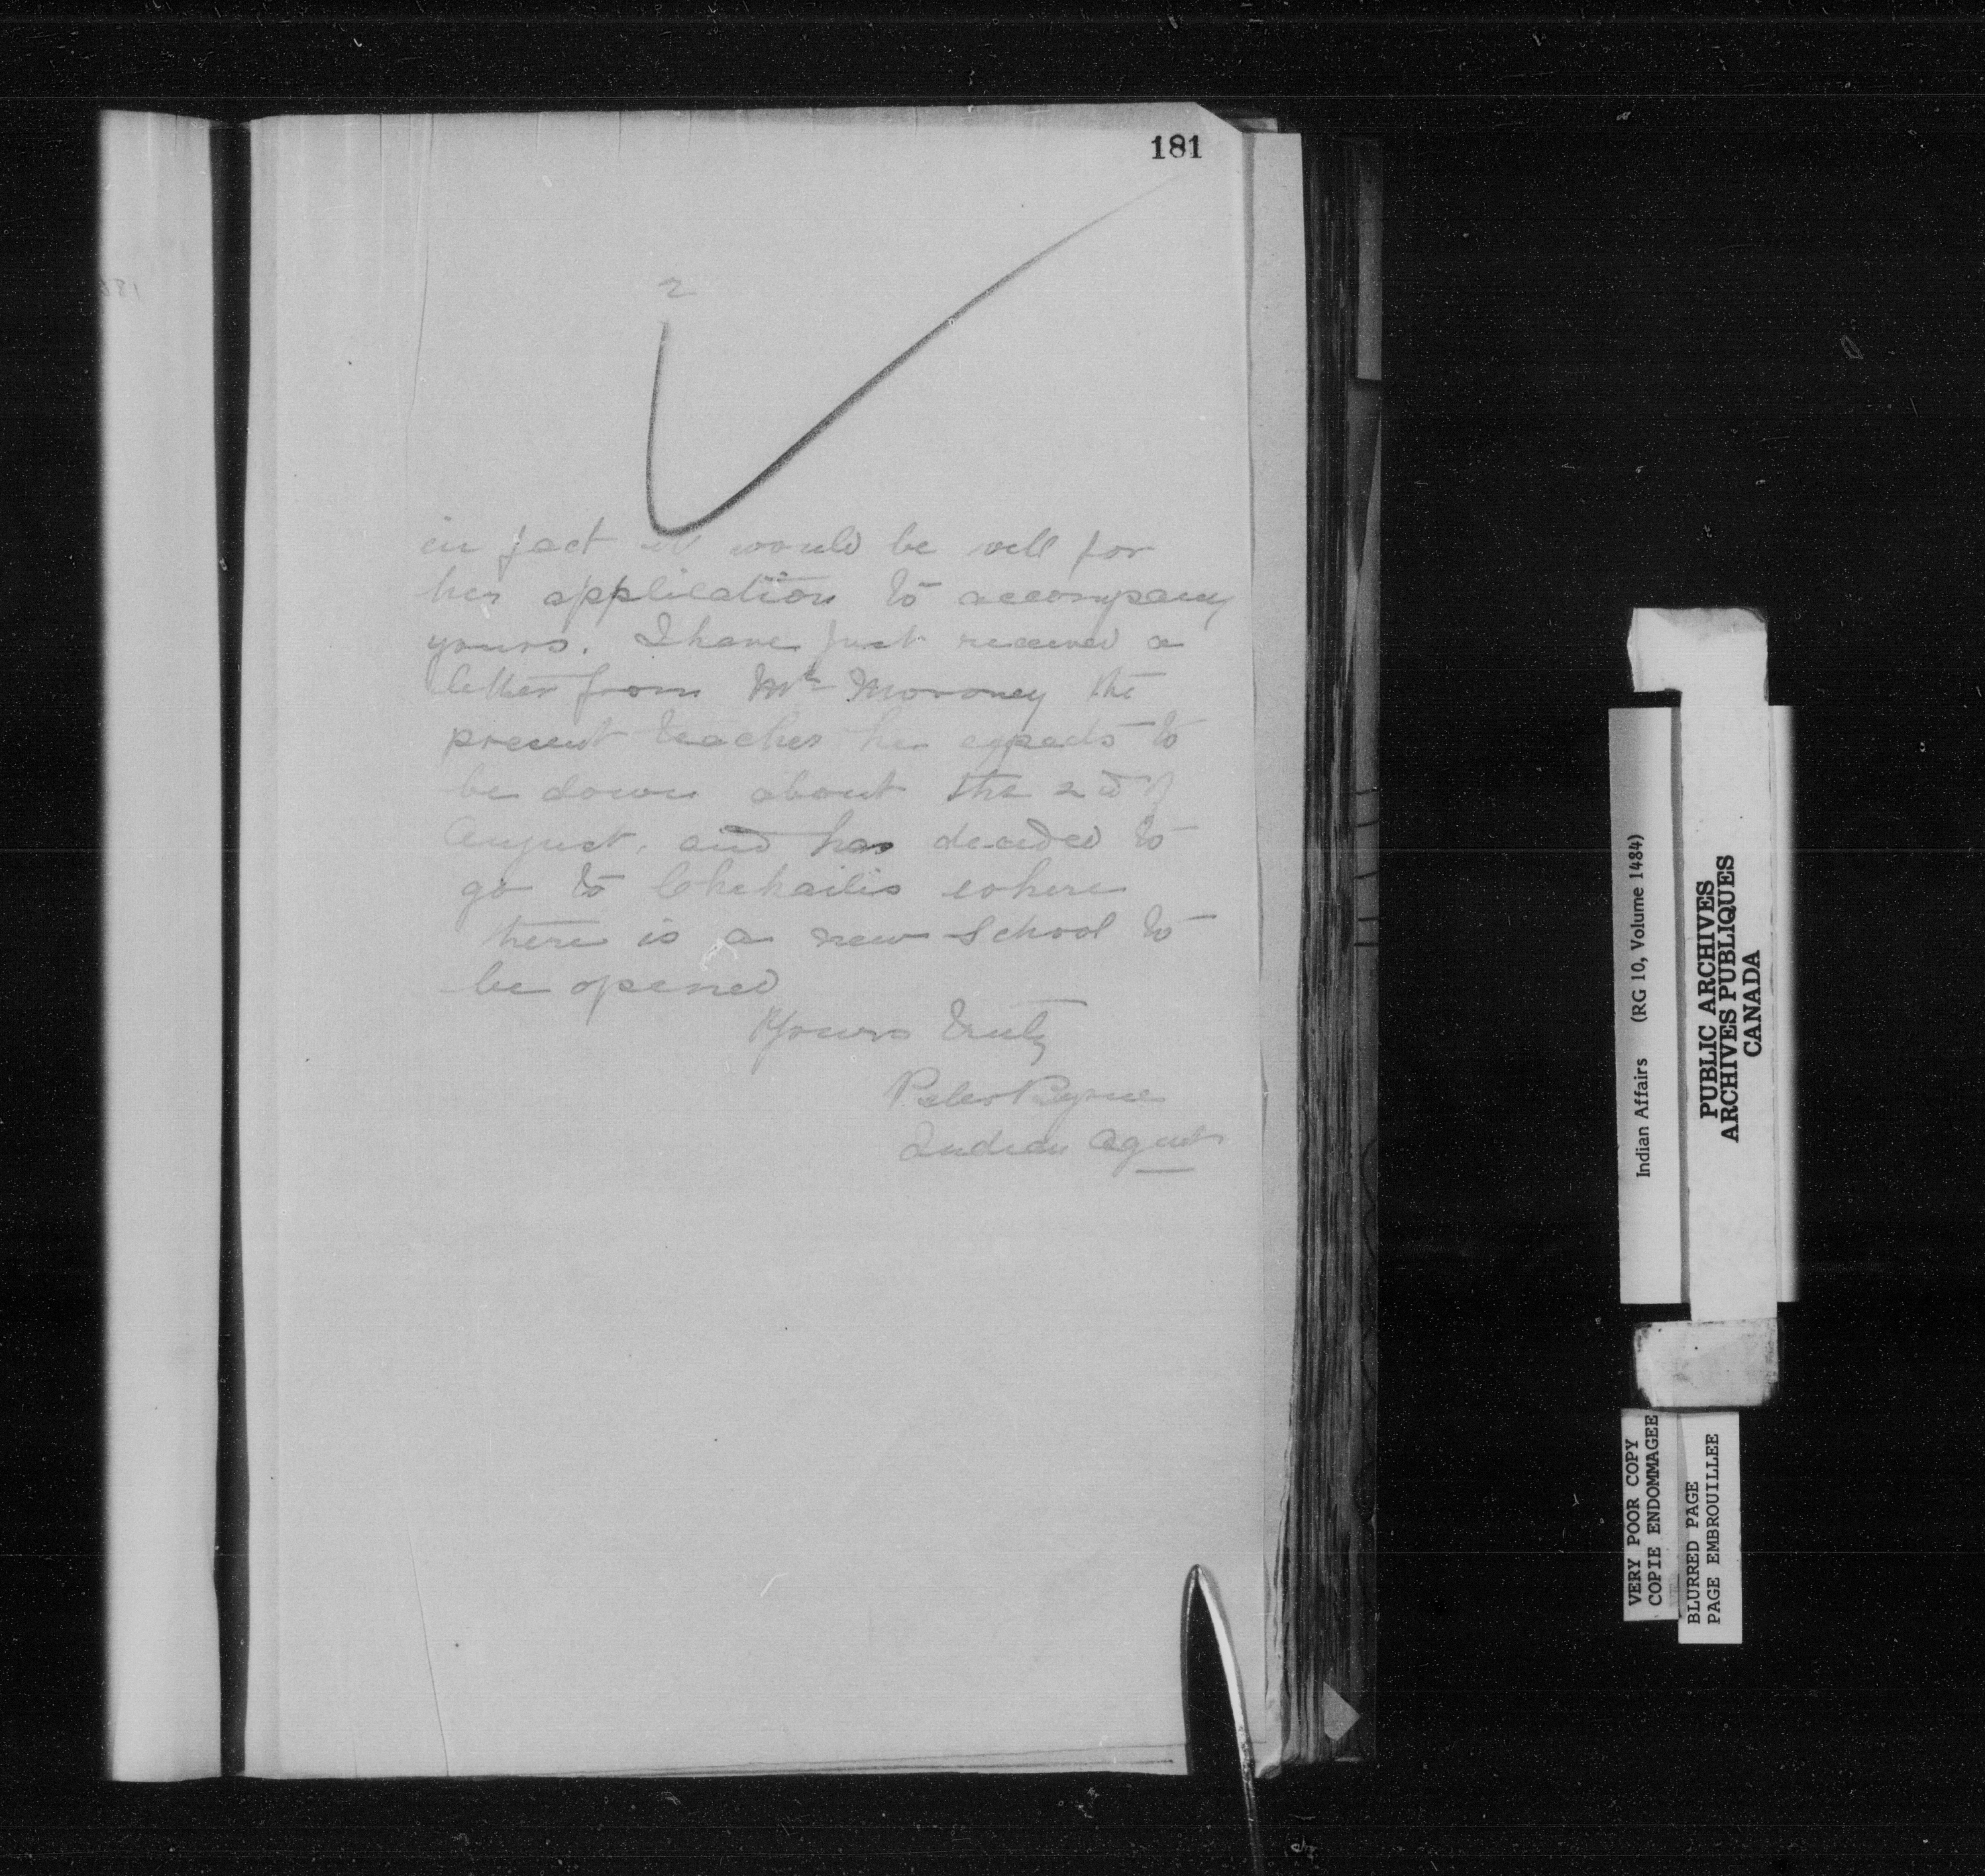 181
2
in fact it would be well for
her application to accompany
yours. I have just received a
letter from Mr Moroney the
present teacher he expects to
be down about the 2nd of
August, and has decided to
go to Chehailis where
there is a new School to
be opened
Yours truly
Peter Byrne
Indian Agent
Indian Affairs (RG 10, Volume 1484)
PUBLIC ARCHIVES
ARCHIVES PUBLIQUES
CANADA
VERY POOR COPY
COPIE ENDOMMAGEE
BLURRED PAGE
PAGE EMBROUILLEE